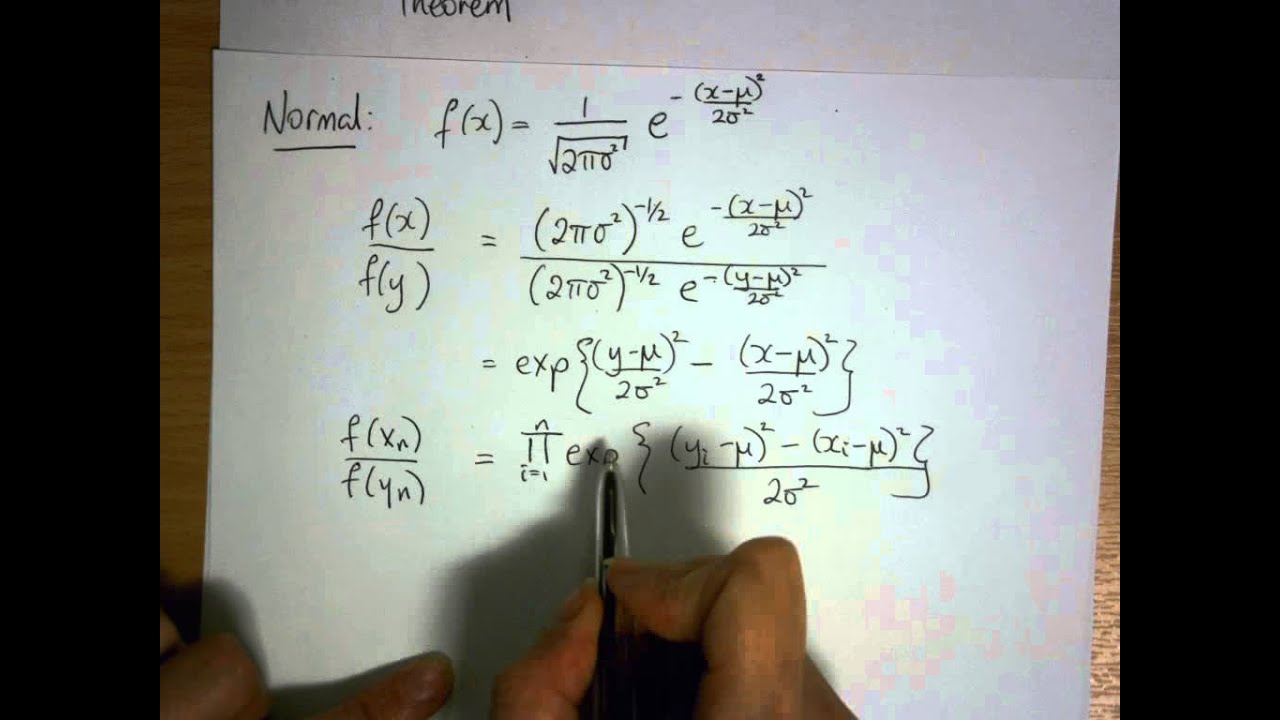 Theorem
Normal: f(x) = 1/√(2πσ²) e^(-(x-μ)²/2σ²)
f(x)/f(y) = (2πσ²)^(-1/2) e^(-(x-μ)²/2σ²) / (2πσ²)^(-1/2) e^(-(y-μ)²/2σ²)
= exp{(y-μ)²/2σ² - (x-μ)²/2σ²}
f(xₙ)/f(yₙ) = ∏ᵢ₌₁ⁿ exp{((yᵢ-μ)² - (xᵢ-μ)²)/2σ²}